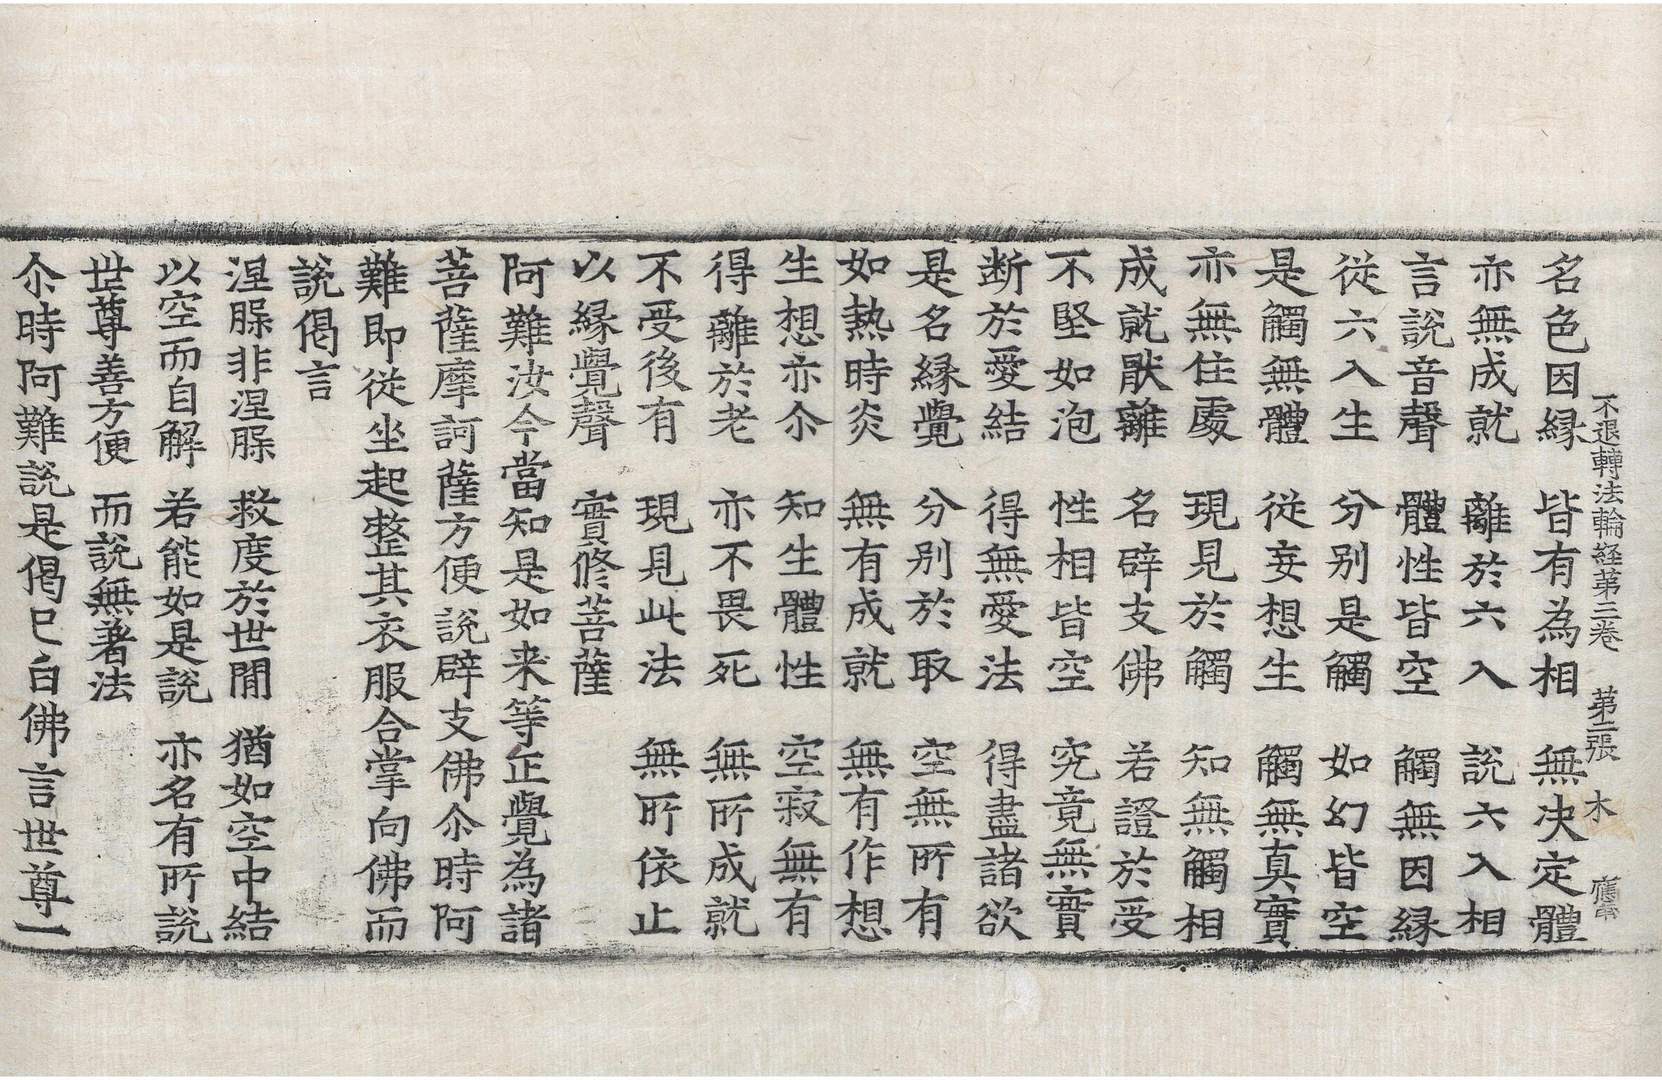 不退轉法輪経第三卷 第二張 木
名色因縁 皆有為相 無决定體
亦無成就 離於六入 說六入相
言說音聲 體性皆空 觸無因縁
從六入生 分别是觸 如幻皆空
是觸無體 從妄想生 觸無真實
亦無住處 現見於觸 知無觸相
成就猒離 名辟支佛 若證於受
不堅如泡 性相皆空 究竟無實
断於愛結 得無愛法 得盡諸欲
是名縁覺 分别於取 空無所有
如熱時炎 無有成就 無有作想
生想亦尒 知生體性 空寂無有
得離於老 亦不畏死 無所成就
不受後有 現見此法 無所依止
以縁覺聲 實修菩薩
阿難汝今當知是如来等正覺為諸
菩薩摩訶薩方便說辟支佛尒時阿
難即從坐起整其衣服合掌向佛而
說偈言
涅腂非涅腂 救度於世間 猶如空中結
以空而自解 若能如是說 亦名有所說
世尊善方便 而說無著法
尒時阿難說是偈已白佛言世尊一